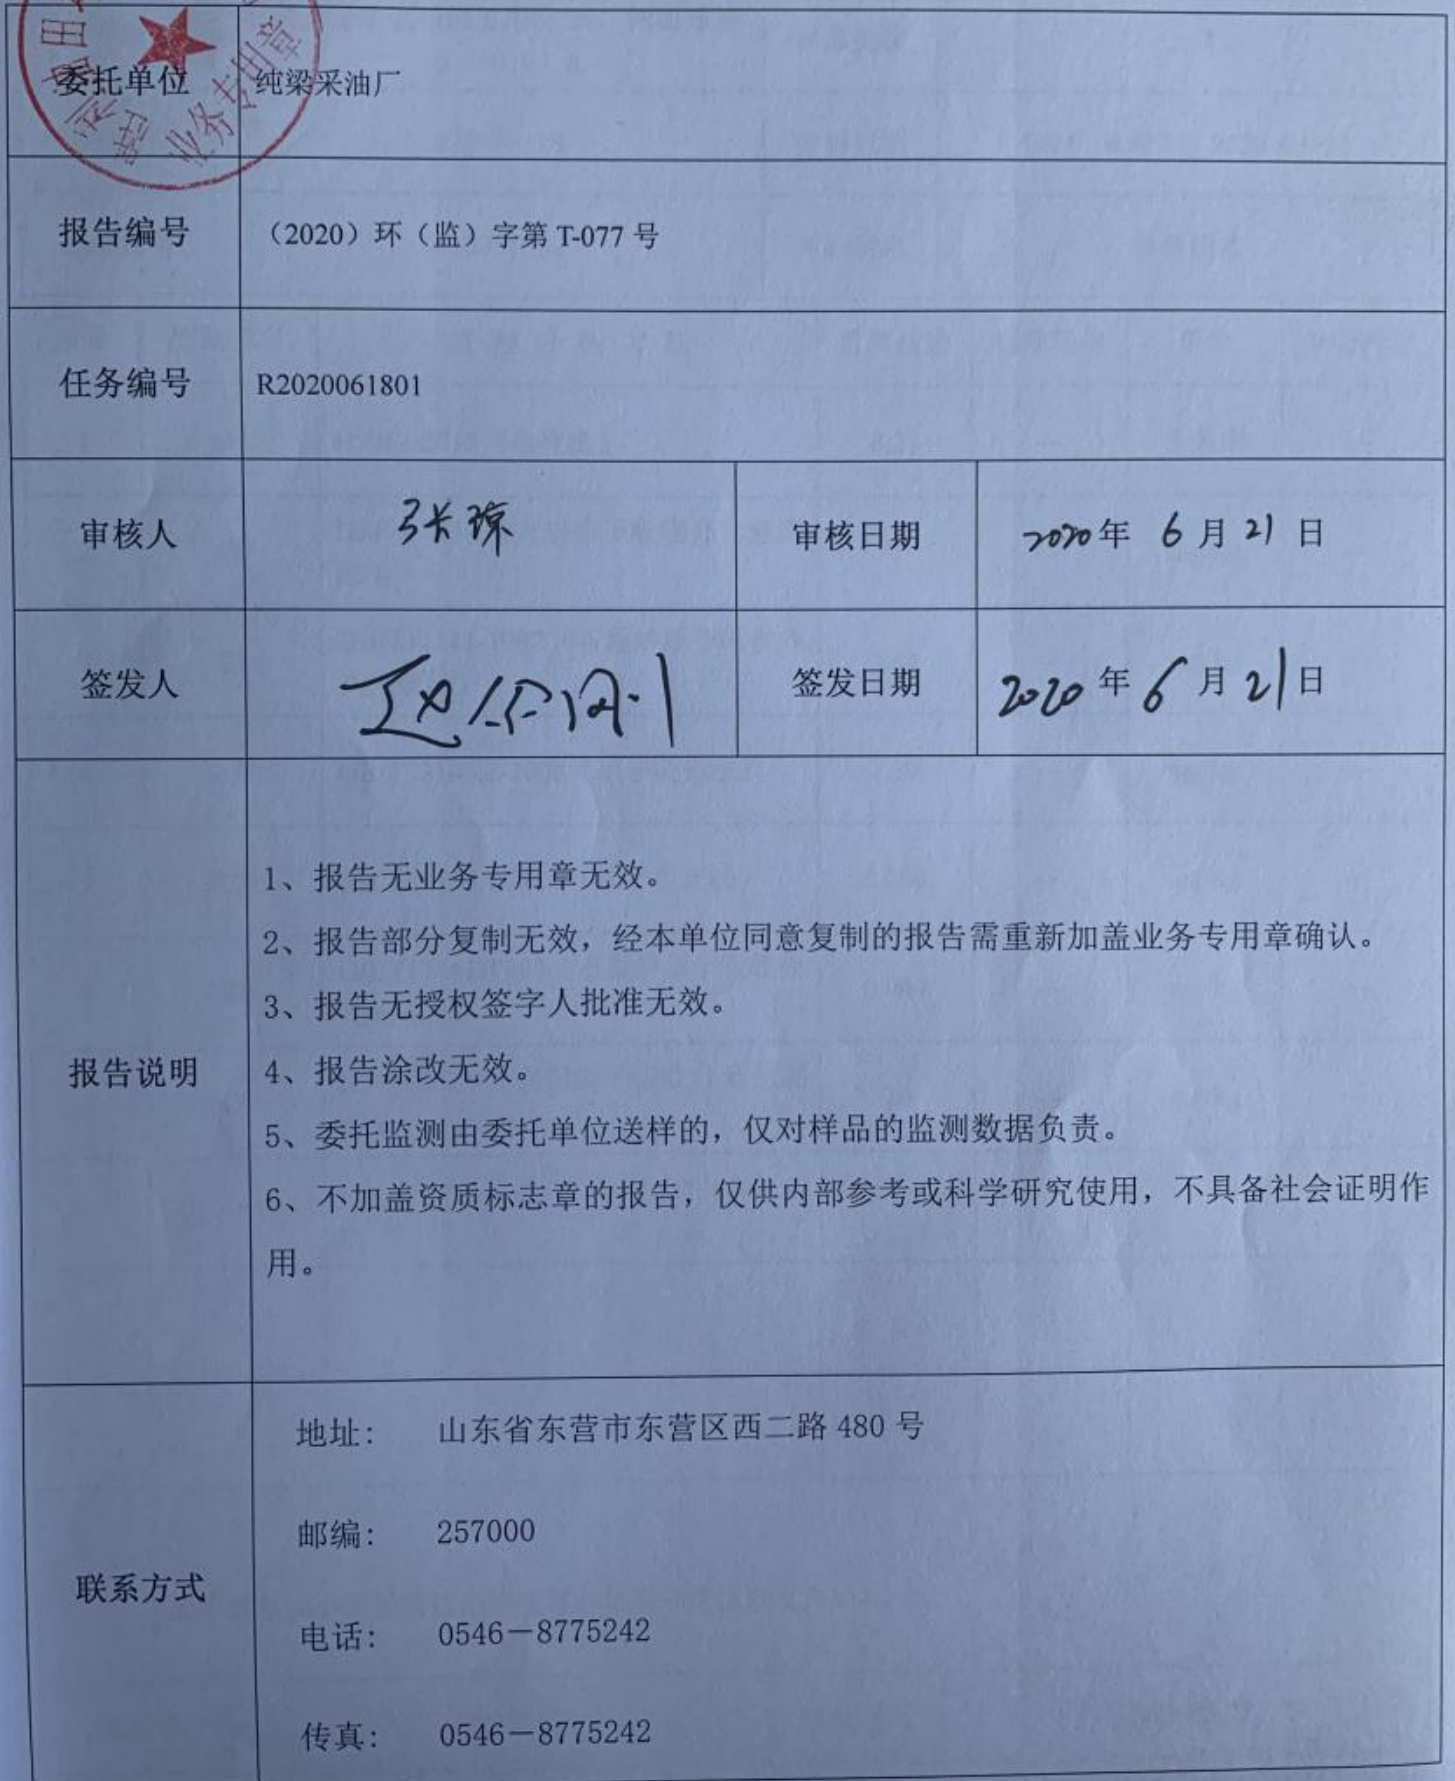 委托单位 纯梁采油厂
业务专用章
报告编号 （2020）环（监）字第 T-077 号
任务编号 R2020061801
审核人 张琼 审核日期 2020年 6 月 21 日
签发人 签发日期 2020 年 6 月 21 日
1、报告无业务专用章无效。
2、报告部分复制无效，经本单位同意复制的报告需重新加盖业务专用章确认。
3、报告无授权签字人批准无效。
报告说明 4、报告涂改无效。
5、委托监测由委托单位送样的，仅对样品的监测数据负责。
6、不加盖资质标志章的报告，仅供内部参考或科学研究使用，不具备社会证明作
用。
地址： 山东省东营市东营区西二路 480 号
邮编： 257000
联系方式
电话： 0546－8775242
传真： 0546－8775242